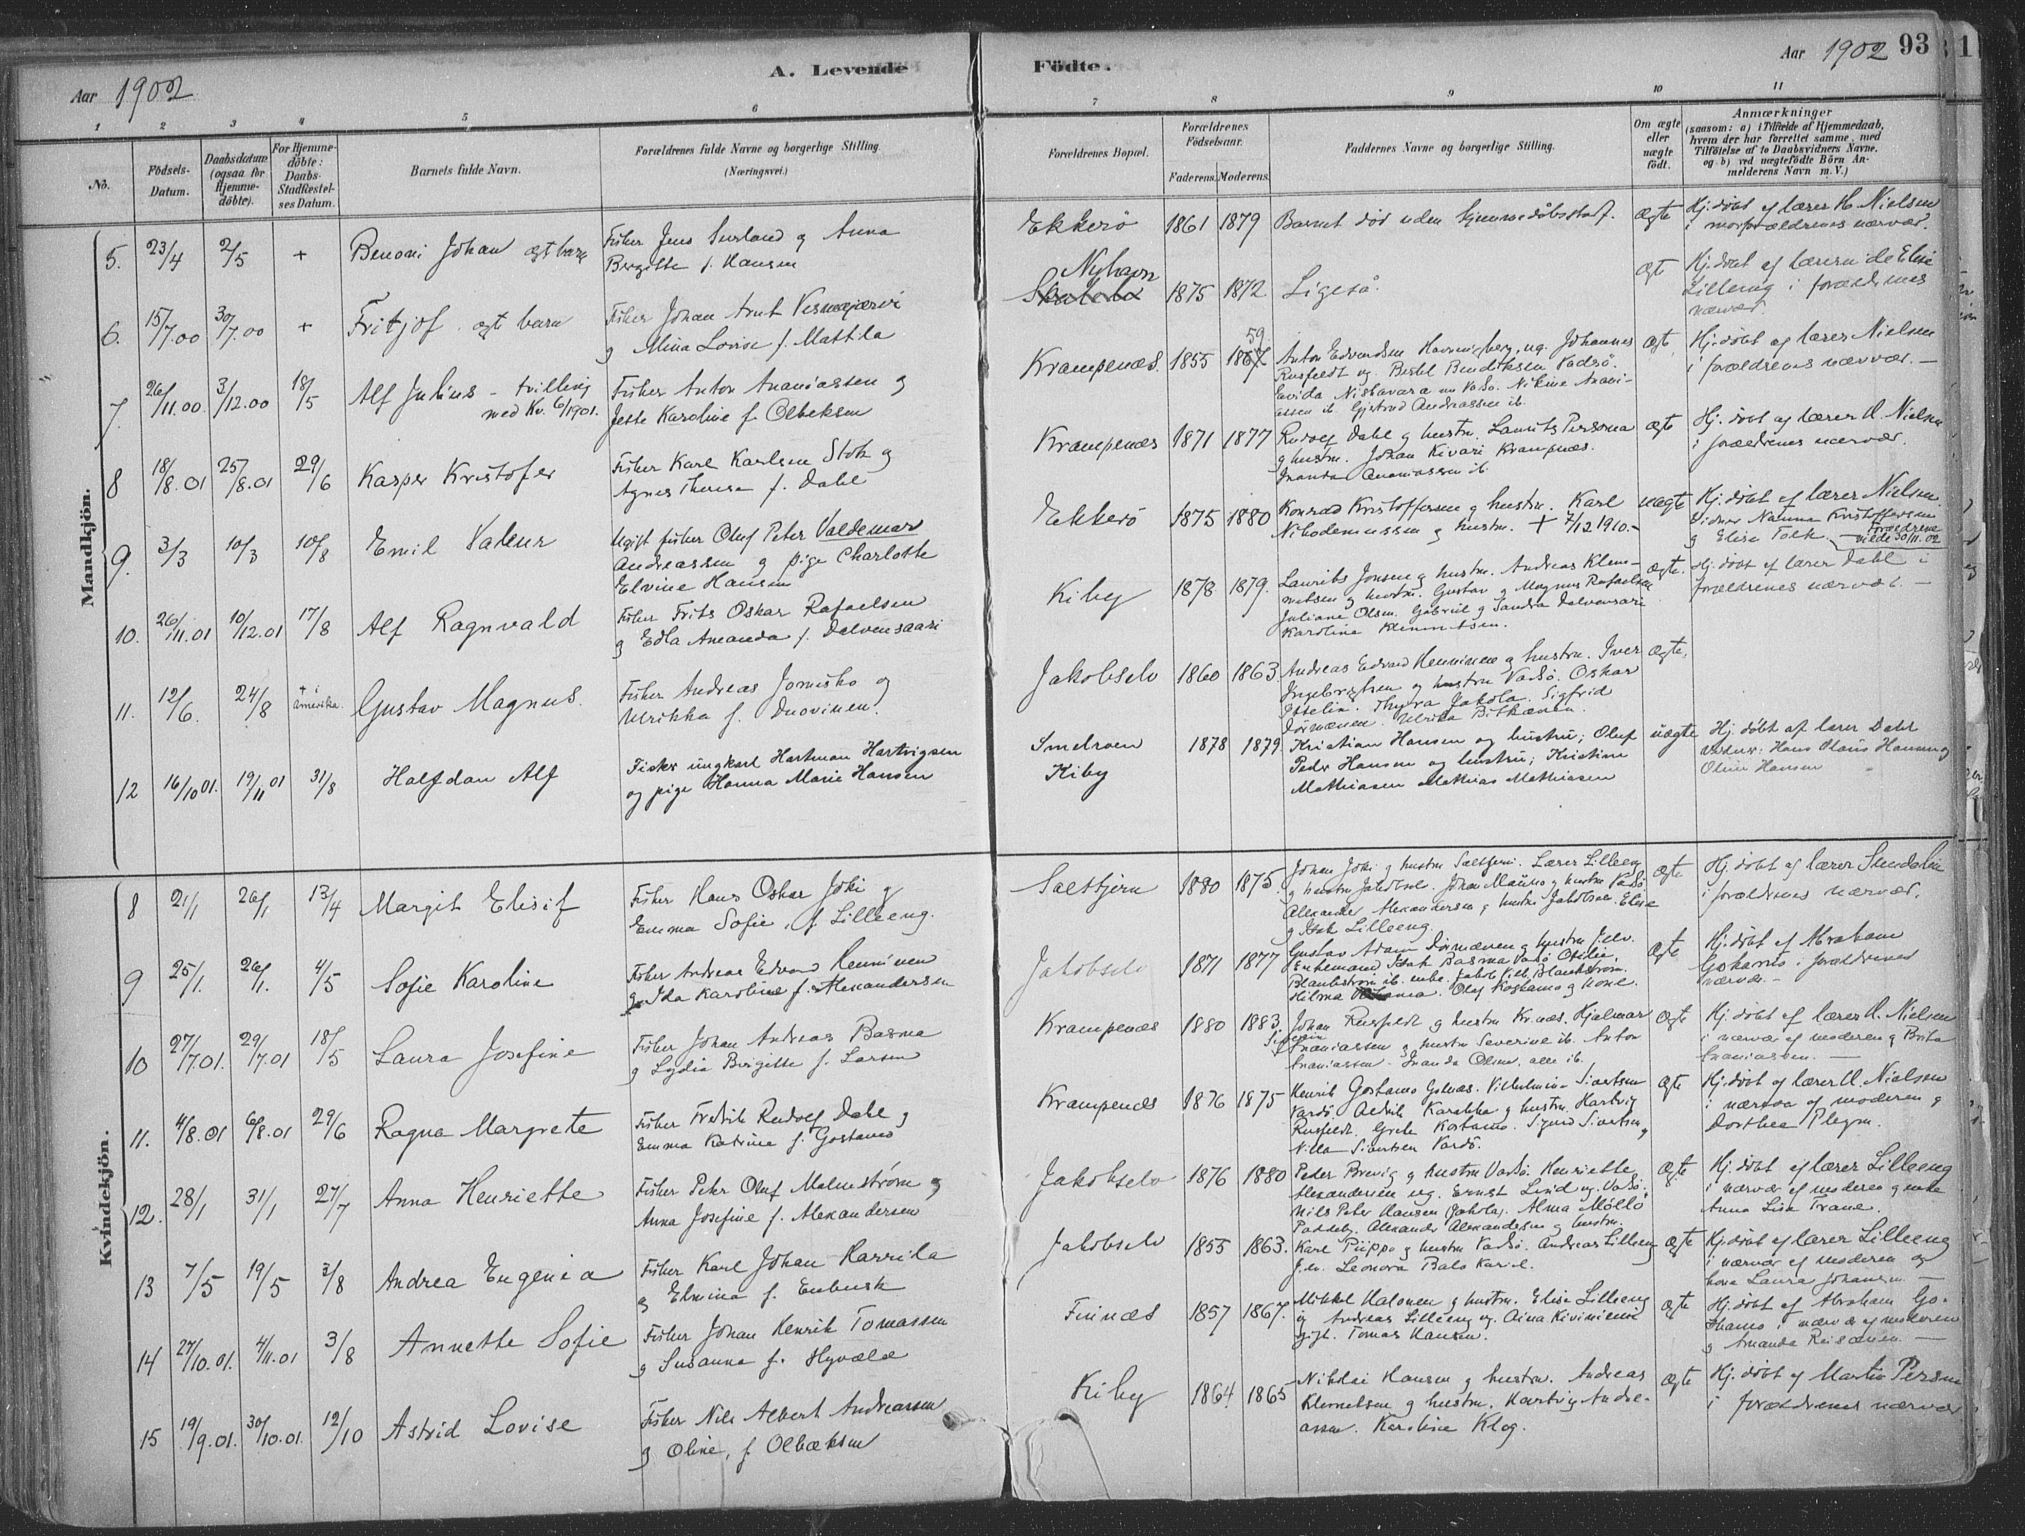 Aar 1902
A. Levende
Födte.
Aar 1902 93
1 2 3 4 5 6 7 8 9 10 11
No.
Födsels-
Datum.
Daabsdatum
(ogsaa for
Hjemme-
döbte).
For Hjemme-
döbte:
Daabs-
Stadfæstel-
ses Datum.
Barnets fulde Navn.
Forældrenes fulde Navne og borgerlige Stilling.
(Næringsvei.)
Forældrenes Bopæl.
Forældrenes
Födselsaar.
Faderens. Moderens.
Faddernes Navne og borgerlige Stilling.
Om ægte
eller
uægte
födt.
Anmærkninger
(saasom: a) i Tilfælde af Hjemmedaab,
hvem der har forrettet samme, med
Tilföielse af to Daabsvidners Navne,
og b) ved uægtefödte Börn An-
melderens Navn m. V.)
Mandkjön.
5. 23/4 2/5 + Benoni Johan ægt barn
Fisker Jens Sivland og Anna
Bergitte f. Hansen
Ekkerö 1861 1879 Barnet död uden hjemmedöbsstadf. ægte
Hj. döbt af lærer H. Nielsen
i morforældrenes nærvær.
6. 15/7.00 30/7.00 + Fritjof ægt barn
Fisker Johan Arnt Vesmajærvi
og Mina Lovise f. Mattila
Nyhavn
1875 1872 Ligeså. ægte
Hj. döbt af lærerinde Elise
Lilleeng i forældrenes
nærvær.
7. 26/11.00. 3/12.00 18/5 Alf Julius - tvilling
med Kv. 6/1901.
Fisker Anton Ananiassen og
Jette Karoline f. Olbeksen
Krampenæs. 1855 59
Anton Edvardsen Havningberg, ug. Johannes
Rusfeldt ug. Bertel Bendiksen Vadsö.
Nistavara Vadsö. Nikine Anani-
assen ib. Gjertrud Andreassen ib.
ægte
Hj. döbt af lærer Nielsen
i forældrenes nærvær. -
8 18/8.01 25/8.01 29/6 Kasper Kristofer
Fisker Karl Karlsen Stok og
Agnes Therese f. Dahl
Krampenæs 1871 1877
Rudolf Dahl og hustru. Laurits Persona
og hustru. Johan Kivari Krampnæs.
Ananiassen ib.
ægte
Hj. döbt af lærer H. Nielsen
i forældrenes nærvær.
9. 3/3 10/3 10/8 Emil Valeur
Ugift fisker Oluf Peter Valdemar
Andreassen og pige Charlotte
Elvine Hansen
Ekkerö 1875 1880
Konrad Kristoffersen og hustru. Karl
Nikodemussen og hustru. + 7/12 1910.-
uægte
Hj. döbt af lærer Nielsen
Vidner Kristoffersen
og Elise Tolk. Forældrene
viede 30/11.02
10. 26/11.01 10/12.01 17/8 Alf Ragnvald
Fisker Frits Oskar Rafaelsen
og Edla Amanda f. Dalvensaari
Kiby 1878 1879.
Laurits Jonsen og hustru. Andreas Klem-
metsen og hustru. Gustav og Magnus Rafaelsen
Juliane Olsen. Gabriel og Sandra Dalvensaari
Karoline Klemmetsen.
ægte.
Hj. döbt af lærer Dahl i
forældrenes nærvær. -
11. 12/6. 24/8 + i
Amerika. Gustav Magnus.
Fisker Andreas Jornisko og
Ulrikka f. Duovinen.
Jakobselv 1860 1863.
Andreas Edvard Henninen og hustru. Iver
Ingebrigtsen og hustru Vadsö. Oskar
Thyra Jakola. Sigfrid
Dörmænen. Ulrika
ægte,
12 16/10 01. 19/11 01 31/8 Halfdan Alf
Fisker ungkarl Hartman Hartvigsen
og pige Hanna Marie Hansen
Smelroren
Kiby
1878 1879.
Kristian Hansen og hustru; Oluf
Peder Hansen og hustru; Kristine
Mathiasen Mathias Mathiasen
uægte
Hj. döbt af lærer Dahl
Vidner: Hans Olaus Hansen og
Oline Hansen
Kvindekjön.
8 21/1 26/1 13/4 Margit Elisif
Fisker Hans Oskar Joki og
Emma Sofie, f. Lilleeng.
Saltbjern 1880 1875.
Johan Joki og hustru Saltbjern. Lærer Lilleeng
og hustru Jakobselv. Johan Mauno og hustru Vadsö
Alexander Alexandersen og hustru Jakobselv. Elise
og Isak Lilleeng.
ægte
Hj. döbt af lærer
i forældrenes nærvær.
9 25/1. 26/1. 4/5 Sofie Karoline
Fisker Andreas Edvard Henninen
og Ida Karoline f. Alexandersen
Jakobselv 1871 1877
Gustav Adam Dörmænen og hustru J.elv.
Isak Basma Vadsö
ib. enke. Jakob Vilh. Blankström.
Hilma Olaf Kostamo og kone.
ægte
Hj. döbt af Abraham
Gostamo i forældrenes
nærvær. -
10 27/7.01. 29/7.01 18/5 Laura Josefine
Fisker Johan Andreas Basma
og Lydia Birgitte f. Larsen
Krampenæs 1880 1883.
Johan Rusfeldt og hustru Kr.næs. Hjalmar
Ananiassen og hustru Severine ib. Anton
Ananiassen. Olsen, alle ib.
ægte
Hj. döbt af lærer H. Nielsen
i nærvær af moderen og Brita
Ananiassen. -
11. 4/8.01 6/8.01 29/6 Ragna Margrete
Fisker Fredrik Rudolf Dahl og
Emma Katrine f. Gostamo
Krampenæs 1876 1875
Henrik Gostamo Golnæs. Vilhelmine Sivertsen
Vardö. og hustru. Hartvig
Rusfeldt. Grete Kostamo. Sigurd Sivertsen og
Nilla Sivertsen Vardö.
ægte
Hj. döbt af lærer H. Nielsen
i nærvær af moderen og
Dorthea Plegm.
12. 28/1 31/1 27/7 Anna Henriette
Fisker Peter Oluf Malmström og
Anna Josefine f. Alexandersen
Jakobselv 1876 1880
Peder Brevig og hustru Vadsö. Henriette
Alexandersen ug. Ernst Lind ug. Vadsö.
Nils Peter Hansen Jakobselv. Alma Möllö
Paddeby. Alexander Alexandersen og hustru.
ægte
Hj. döbt af lærer Lilleeng
i nærvær af moderen og enke
Anna Lisa Trane.
13 7/5 19/5 3/8 Andrea Eugenia
Fisker Karl Johan Harrila
og Elmina f. Enbusk
Jakobselv 1855 1863.
Karl Piippo og hustru Vadsö. Andreas Lilleeng
J.elv. Leonora Balo
ægte
Hj. döbt af lærer Lilleeng
i nærvær af moderen og
kone Laura Johansen -
14 27/10.01. 4/11.01 3/8 Annette Sofie
Fisker Johan Henrik Tomassen
og Susanna f. Hyvælæ
Finnæs 1857 1867.
Mikkel Halonen og hustru. Elise Lilleeng
og Andreas Lilleeng ug. Aina Kiviniemi
gift. Tomas Hansen.
ægte
Hj. döbt af Abraham Go-
stamo i nærvær af moderen
og Amanda Reisænen -
15 19/9.01. 30/10.01. 12/10 Astrid Lovise
Fisker Nils Albert Andreassen
og Oline, f. Olbæksen
Kiby 1864 1865
Nikolai Hansen og hustru. Andreas
Klemetsen og hustru. Hartvig Andre-
assen. Karoline Klog.
ægte
Hj. döbt af Martin Persen
i forældrenes nærvær